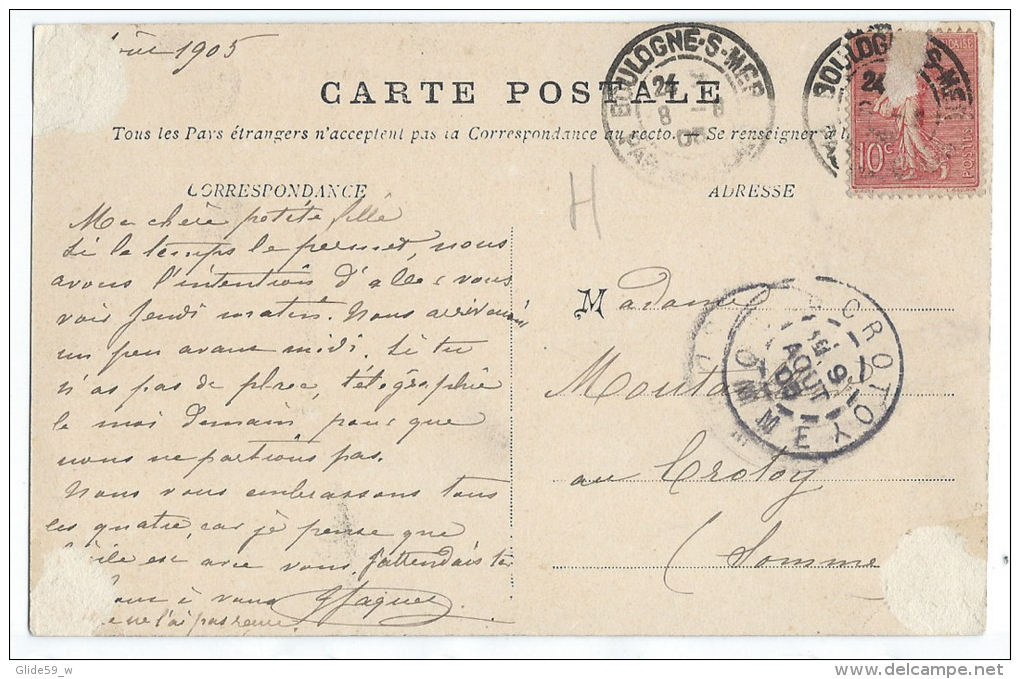 août 1905
CARTE POSTALE
Tous les Pays étrangers n'acceptent pas la Correspondance au recto. — Se renseigner à
CORRESPONDANCE
ADRESSE
H
BOULOGNE-S-MER
24
8 - 8
05
BOULOGNE-S-MER
24
10c
POSTES
Ma chere petite fille
Si le temps le permet, nous
avons l'intention d'aller vous
voir Jeudi matin. Nous arriverons
un peu avant midi. Si tu
n'as pas de place, télégraphie
le moi demain, pour que
nous ne partions pas.
Nous vous embrassons tous
les quatre, car je pense que
est avec vous. J'attendais ta
à vous
ne l'ai pas reçue.
Madame
au Crotoy
(Somme
CROTOY
SOMME
9
AOUT
05
Glide59_w
www.delcampe.net